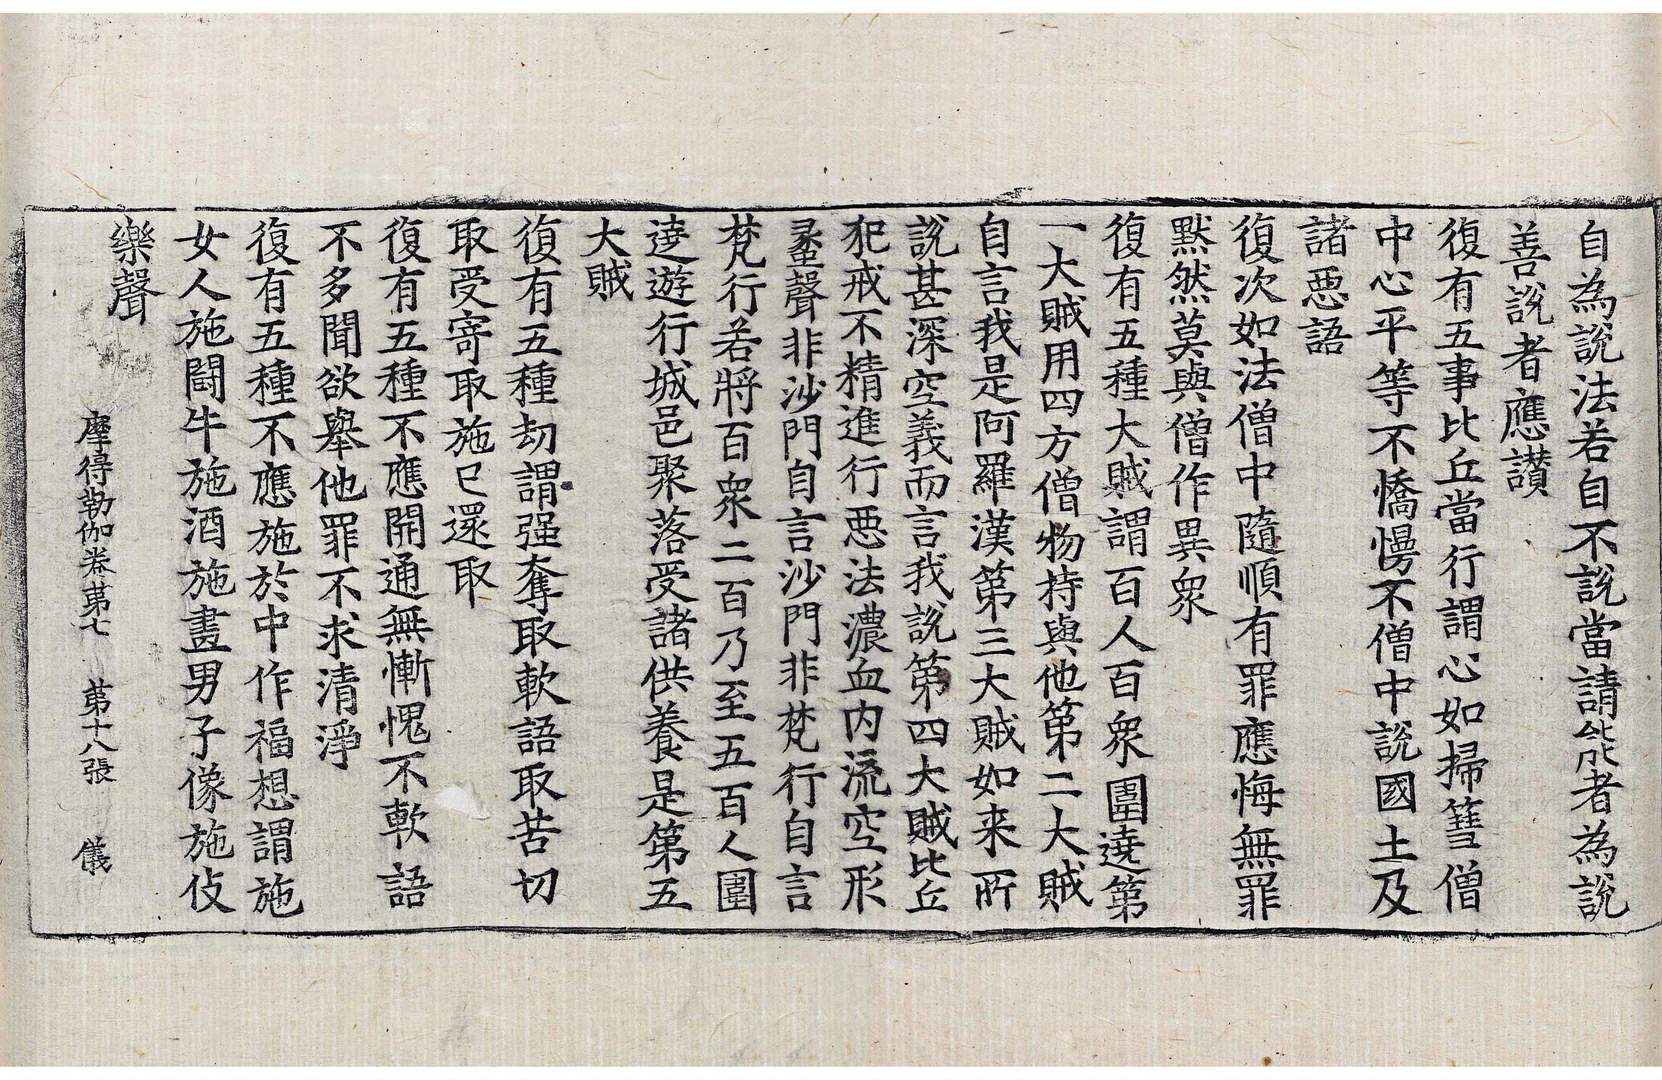 自為說法若自不說當請能者為說
善說者應讃
復有五事比丘當行謂心如掃篲僧
中心平等不憍慢不僧中說國土及
諸惡語
復次如法僧中隨順有罪應悔無罪
默然莫與僧作異衆
復有五種大賊謂百人百衆圍遶第
一大賊用四方僧物持與他第二大賊
自言我是阿羅漢第三大賊如来所
說甚深空義而言我說第四大賊比丘
犯戒不精進行惡法濃血內流空形
蠡聲非沙門自言沙門非梵行自言
梵行若將百衆二百乃至五百人圍
遶遊行城邑聚落受諸供養是第五
大賊
復有五種刧謂强奪取軟語取苦切
取受寄取施已還取
復有五種不應開通無慚愧不軟語
不多聞欲舉他罪不求清淨
復有五種不應施於中作福想謂施
女人施鬪牛施酒施畫男子像施伎
樂聲
摩得勒伽卷苐七　苐十八張　儀